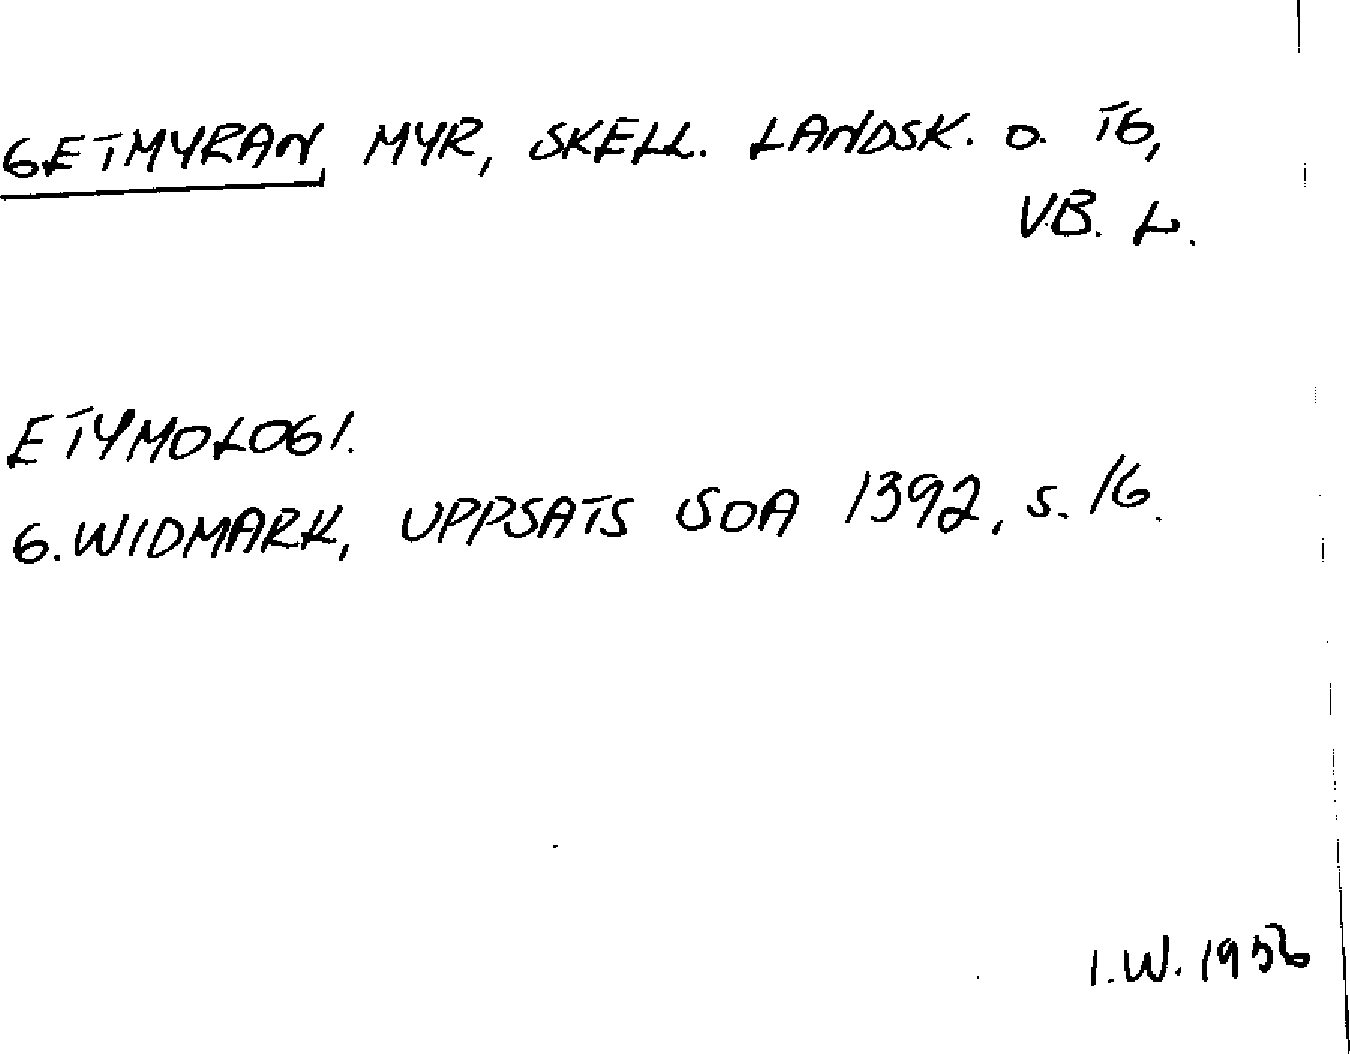 GETMYRAN MYR, SKELL. LANDSK. O. TG,
VB. L.
ETYMOLOGI.
G. WIDMARK, UPPSATS SOA 1392, S. 16.
I.W. 1956